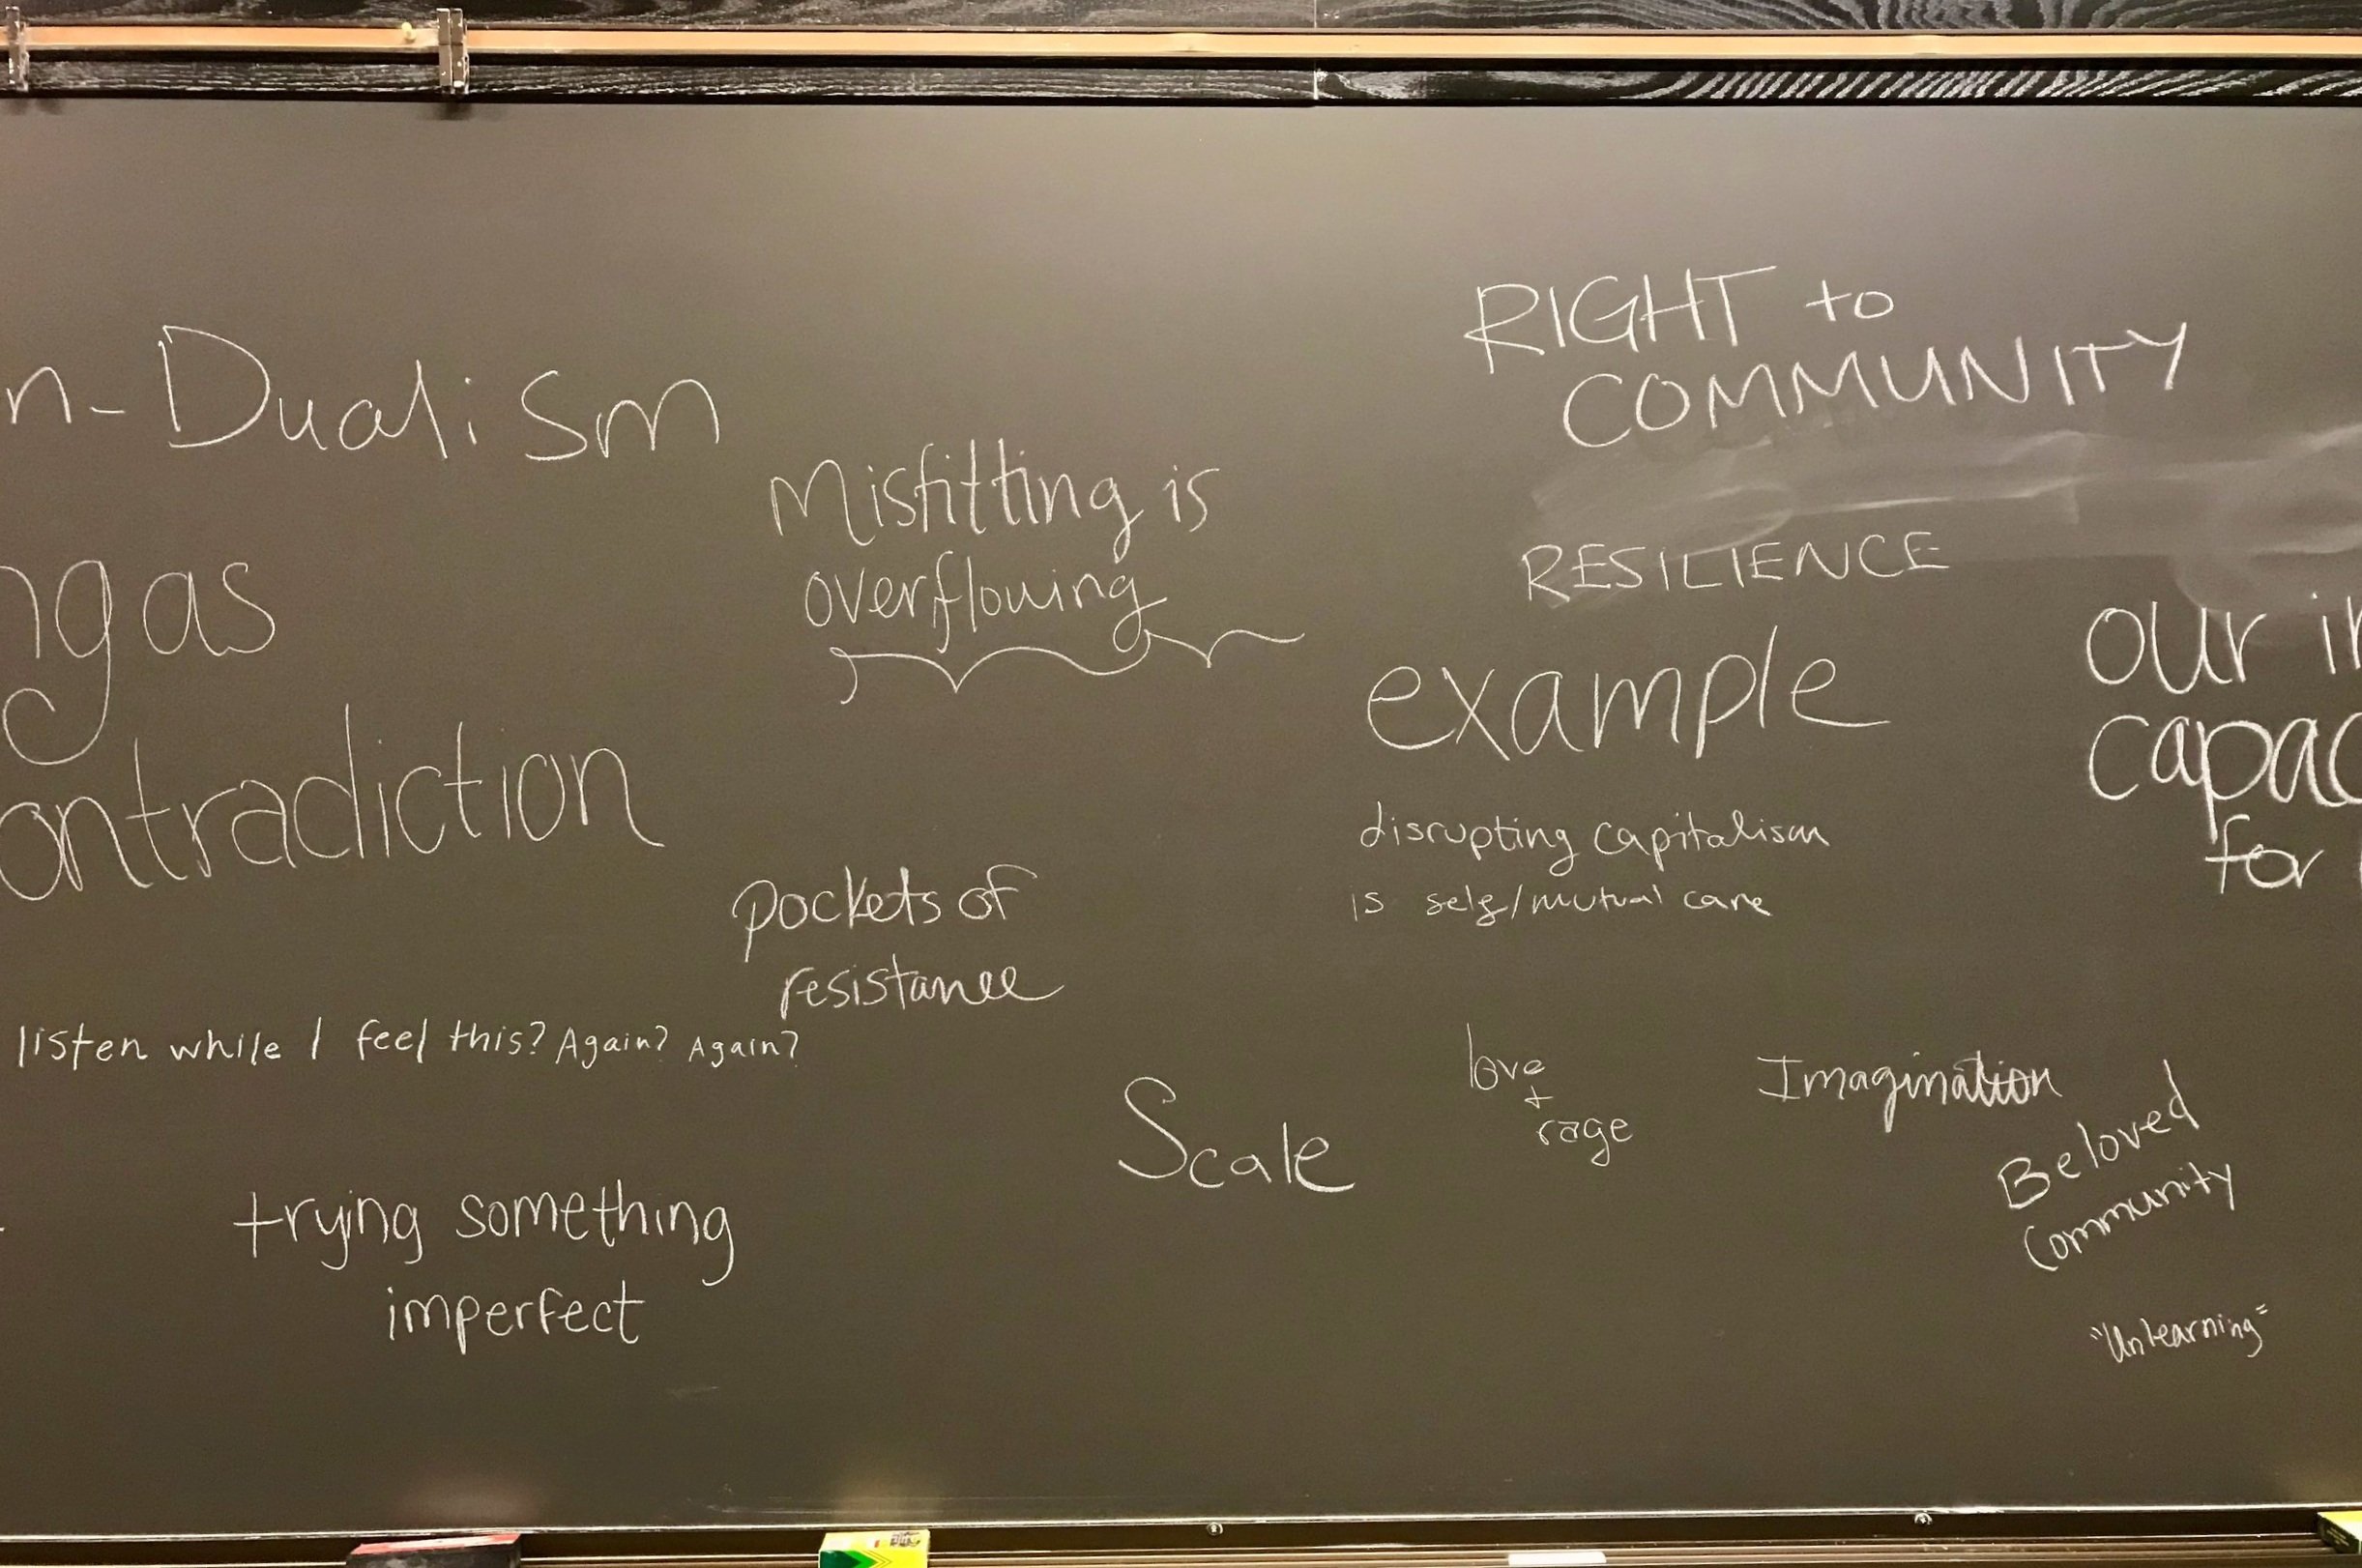 n-Dualism
ng as
ontradiction
listen while I feel this? Again? Again?
trying something
imperfect
Misfitting is
overflowing
pockets of
resistance
Scale
RIGHT to
COMMUNITY
RESILIENCE
example
disrupting capitalism
is self/mutual care
love
+
rage
Imagination
Beloved
Community
"Unlearning"
our in
capac
for